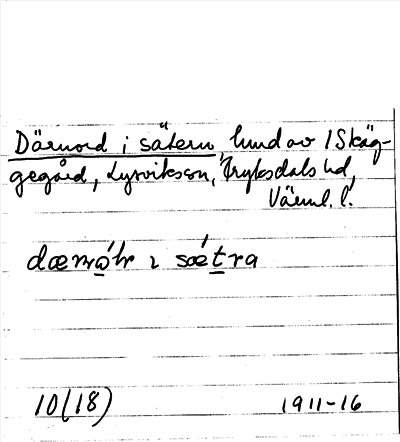 Därnord i sätern, lund av 1 Skäg-
gegård, Lysviks sn, Fryksdals hd,
Värml. l.
dærnọ́r ɩ sǽtra
10(18) 1911-16